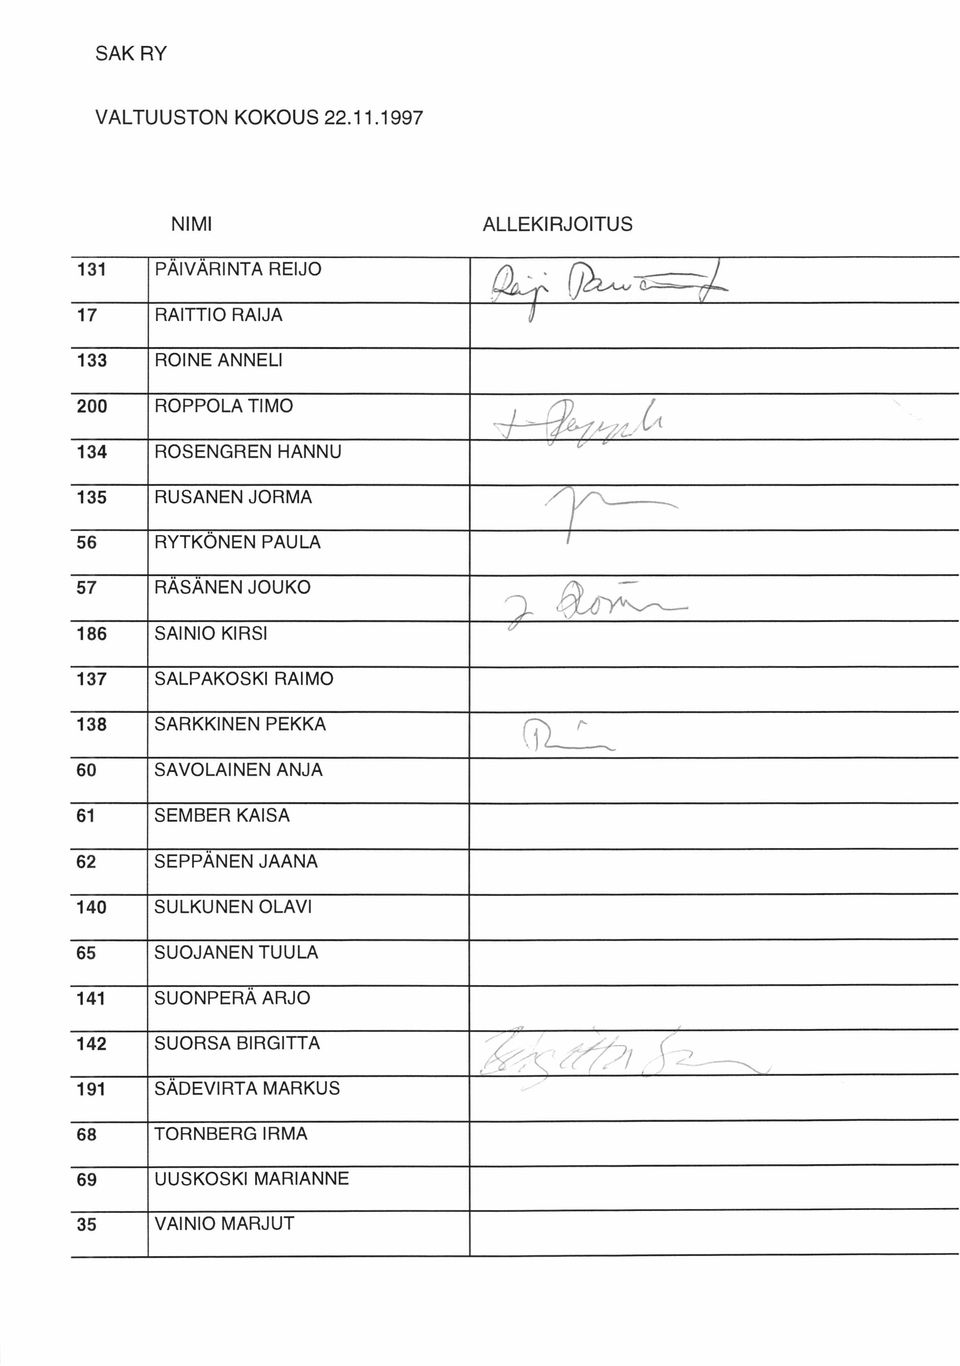 SAK RY
VALTUUSTON KOKOUS 22.11.1997
NIMI ALLEKIRJOITUS
131 PÄIVÄRINTA REIJO Reijo
17 RAITTIO RAIJA
133 ROINE ANNELI
200 ROPPOLA TIMO
134 ROSENGREN HANNU
135 RUSANEN JORMA
56 RYTKÖNEN PAULA
57 RÄSÄNEN JOUKO
186 SAINIO KIRSI
137 SALPAKOSKI RAIMO
138 SARKKINEN PEKKA
60 SAVOLAINEN ANJA
61 SEMBER KAISA
62 SEPPÄNEN JAANA
140 SULKUNEN OLAVI
65 SUOJANEN TUULA
141 SUONPERÄ ARJO
142 SUORSA BIRGITTA Birgitta
191 SÄDEVIRTA MARKUS
68 TORNBERG IRMA
69 UUSKOSKI MARIANNE
35 VAINIO MARJUT